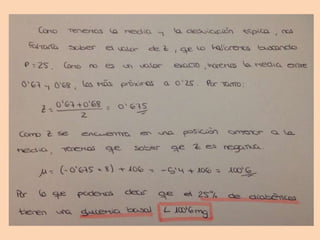 Como tenemos la media y la desviación típica, nos
faltaría saber el valor de Z, que lo hallaremos buscando
P=25. Como no es un valor exacto, haremos la media entre
0'67 y 0'68, los más próximos a 0'25. Por tanto:
Z = 0'67+0'68 / 2 = 0'675
Como Z se encuentra en una posición anterior a la
media, tenemos que saber que Z es negativa.
μ = (-0'675 * 8) + 106 = -5'4 + 106 = 100'6
Por lo que podemos decir que el 25% de diabéticos
tienen una glucemia basal L 100'6mg